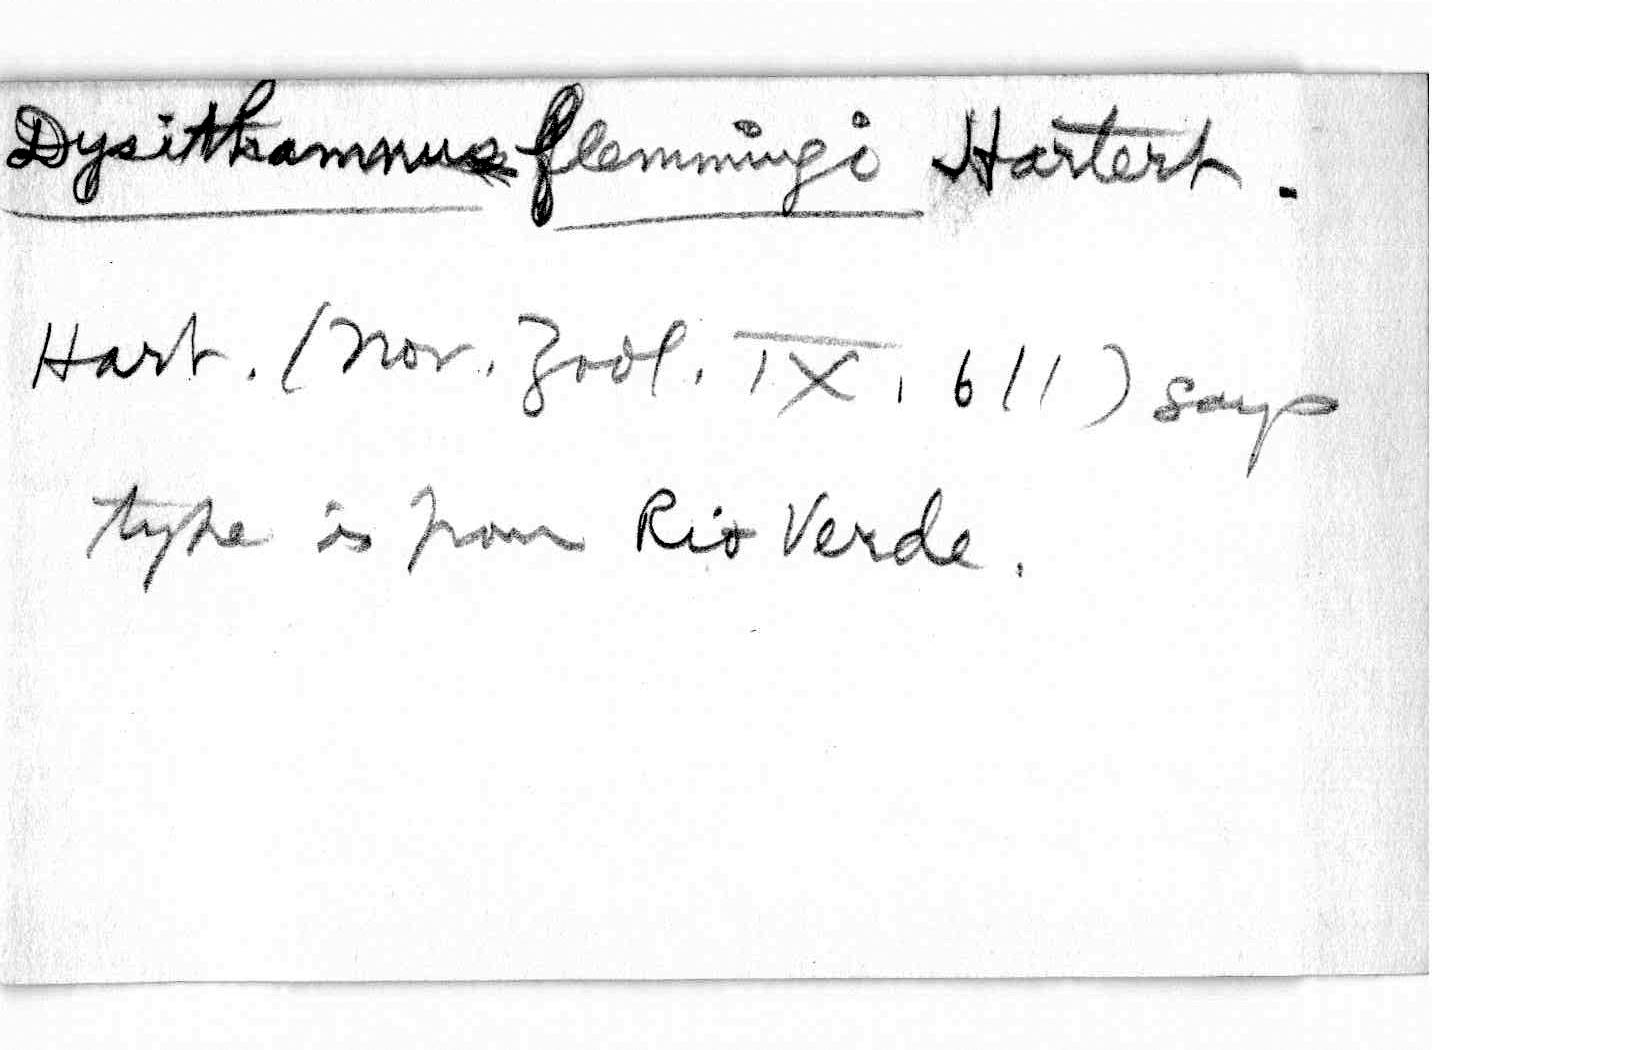 Dysithamnus flemmingi Hartert.
Hart. (Nov. Zool. IX, 611) says
type is from Rio Verde.